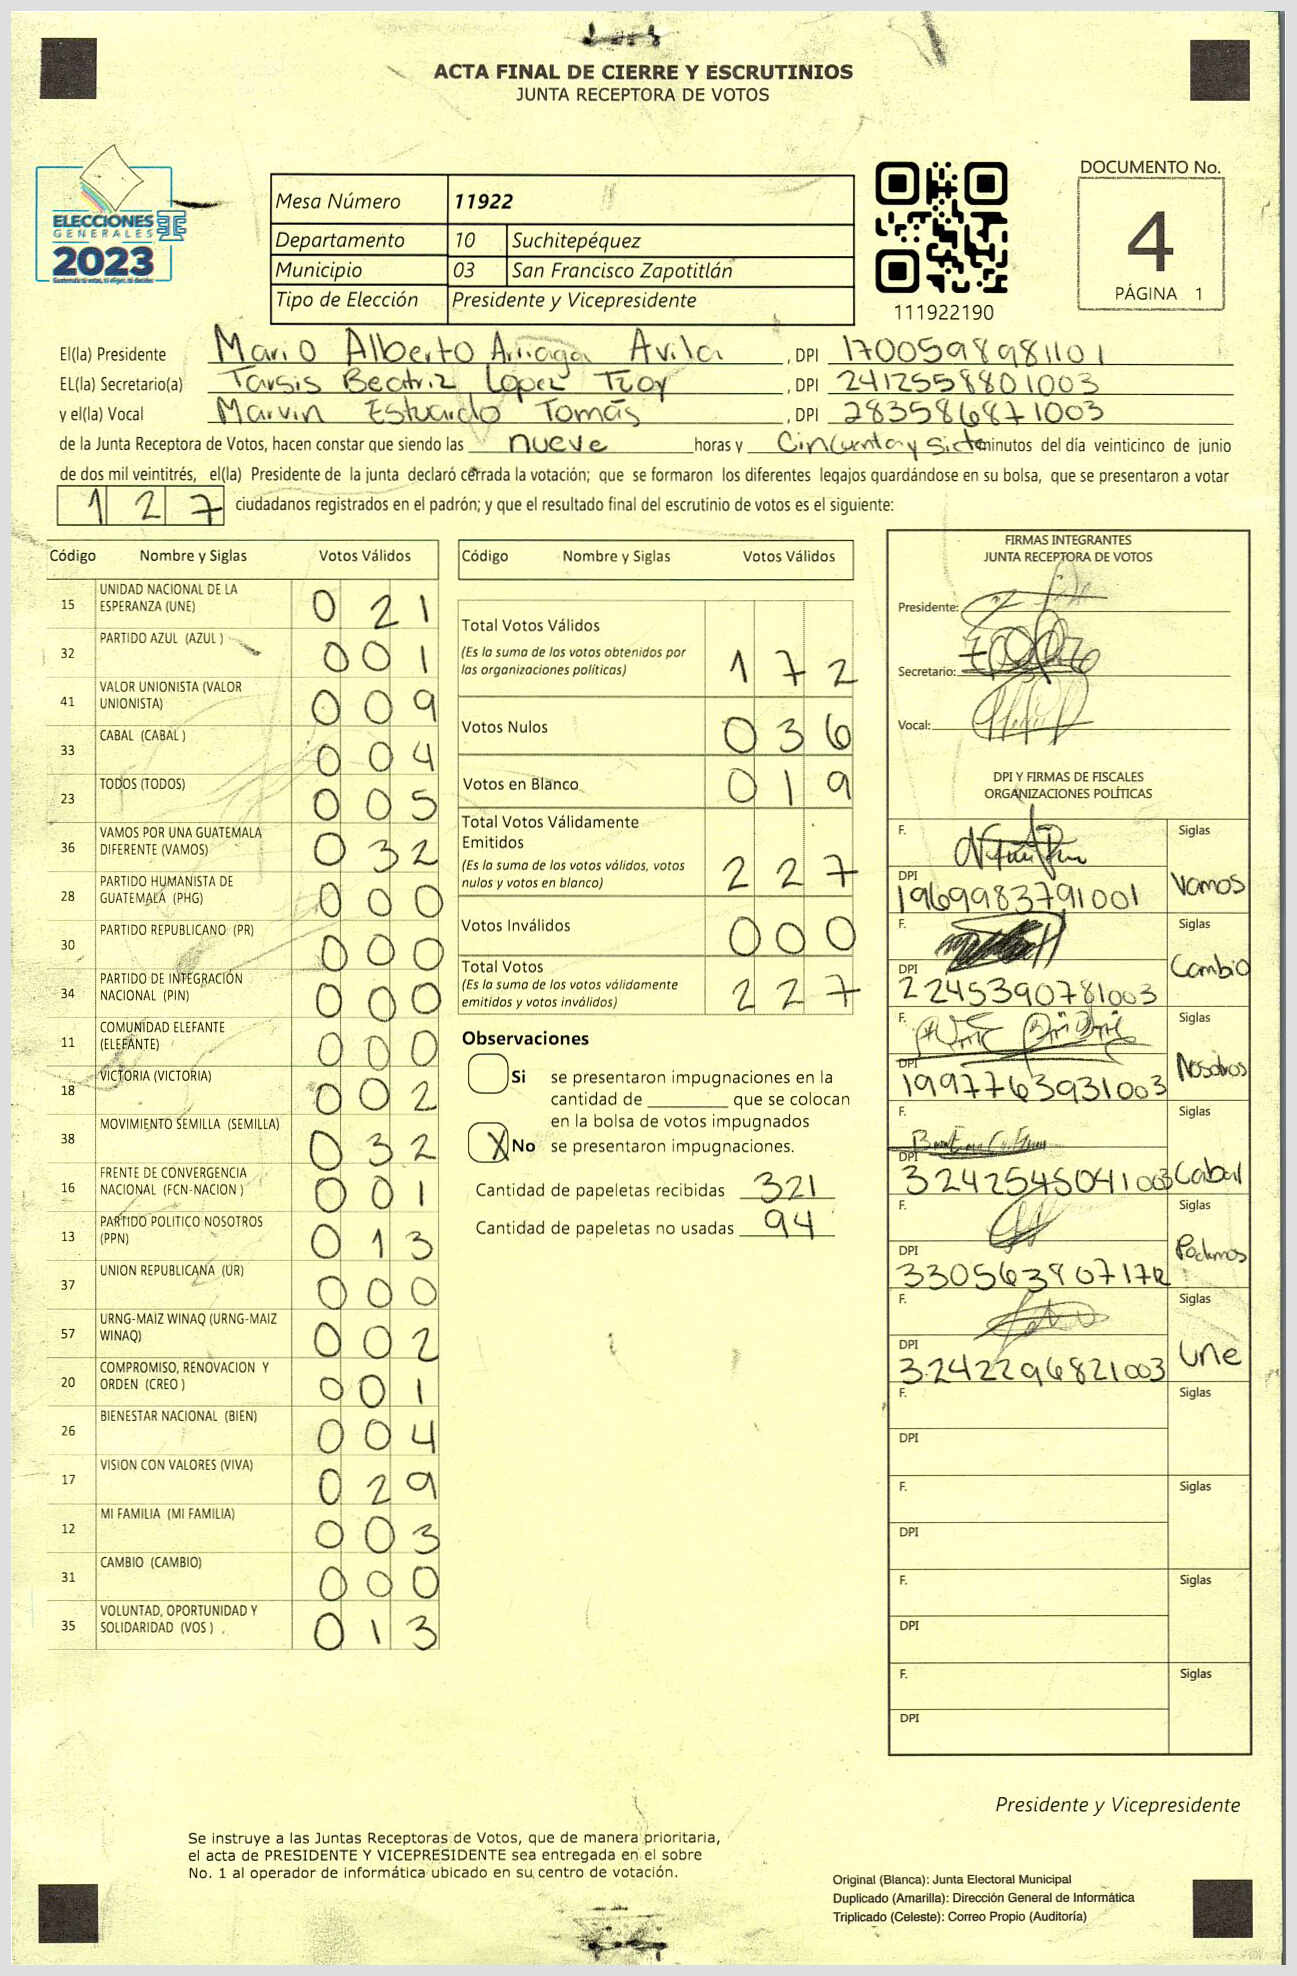 ACTA FINAL DE CIERRE Y ESCRUTINIOS
JUNTA RECEPTORA DE VOTOS
ELECCIONES
GENERALES
2023
Mesa Número 11922
Departamento 10 Suchitepéquez
Municipio 03 San Francisco Zapotitlán
Tipo de Elección Presidente y Vicepresidente
111922190
DOCUMENTO No.
4
PÁGINA 1
El(la) Presidente Mario Alberto Arriaga Avila , DPI 1700598981101
EL(la) Secretario(a) Tarsis Beatriz Lopez Tzoy , DPI 2412558801003
y el(la) Vocal Marvin Estuardo Tomás , DPI 283586871003
de la Junta Receptora de Votos, hacen constar que siendo las nueve horas y Cincuenta y siete minutos del día veinticinco de junio
de dos mil veintitrés, el(la) Presidente de la junta declaró cerrada la votación; que se formaron los diferentes legajos guardándose en su bolsa, que se presentaron a votar
127 ciudadanos registrados en el padrón; y que el resultado final del escrutinio de votos es el siguiente:
Código Nombre y Siglas Votos Válidos
15 UNIDAD NACIONAL DE LA ESPERANZA (UNE) 021
32 PARTIDO AZUL (AZUL ) 001
41 VALOR UNIONISTA (VALOR UNIONISTA) 009
33 CABAL (CABAL ) 004
23 TODOS (TODOS) 005
36 VAMOS POR UNA GUATEMALA DIFERENTE (VAMOS) 032
28 PARTIDO HUMANISTA DE GUATEMALA (PHG) 000
30 PARTIDO REPUBLICANO (PR) 000
34 PARTIDO DE INTEGRACIÓN NACIONAL (PIN) 000
11 COMUNIDAD ELEFANTE (ELEFANTE) 000
18 VICTORIA (VICTORIA) 002
38 MOVIMIENTO SEMILLA (SEMILLA) 032
16 FRENTE DE CONVERGENCIA NACIONAL (FCN-NACION ) 001
13 PARTIDO POLITICO NOSOTROS (PPN) 013
37 UNION REPUBLICANA (UR) 000
57 URNG-MAIZ WINAQ (URNG-MAIZ WINAQ) 002
20 COMPROMISO, RENOVACION Y ORDEN (CREO ) 001
26 BIENESTAR NACIONAL (BIEN) 004
17 VISION CON VALORES (VIVA) 029
12 MI FAMILIA (MI FAMILIA) 003
31 CAMBIO (CAMBIO) 000
35 VOLUNTAD, OPORTUNIDAD Y SOLIDARIDAD (VOS ) 013
Código Nombre y Siglas Votos Válidos
Total Votos Válidos 172
(Es la suma de los votos obtenidos por
las organizaciones políticas)
Votos Nulos 036
Votos en Blanco 019
Total Votos Válidamente
Emitidos 227
(Es la suma de los votos válidos, votos
nulos y votos en blanco)
Votos Inválidos 000
Total Votos 227
(Es la suma de los votos válidamente
emitidos y votos inválidos)
Observaciones
Si se presentaron impugnaciones en la
cantidad de ________ que se colocan
en la bolsa de votos impugnados
X No se presentaron impugnaciones.
Cantidad de papeletas recibidas 321
Cantidad de papeletas no usadas 94
FIRMAS INTEGRANTES
JUNTA RECEPTORA DE VOTOS
Presidente:
Secretario:
Vocal:
DPI Y FIRMAS DE FISCALES
ORGANIZACIONES POLÍTICAS
F. Siglas
DPI 1969983791001 Vamos
F. Siglas
DPI 2245390781003 Cambio
F. Siglas
DPI 1997763931003 Nosotros
F. Siglas
DPI 3242545041003 Cabal
F. Siglas
DPI Podemos
F. Siglas
DPI 3242296821003 Une
F. Siglas
DPI
F. Siglas
DPI
F. Siglas
DPI
F. Siglas
DPI
Presidente y Vicepresidente
Se instruye a las Juntas Receptoras de Votos, que de manera prioritaria,
el acta de PRESIDENTE Y VICEPRESIDENTE sea entregada en el sobre
No. 1 al operador de informática ubicado en su centro de votación.
Original (Blanca): Junta Electoral Municipal
Duplicado (Amarilla): Dirección General de Informática
Triplicado (Celeste): Correo Propio (Auditoría)